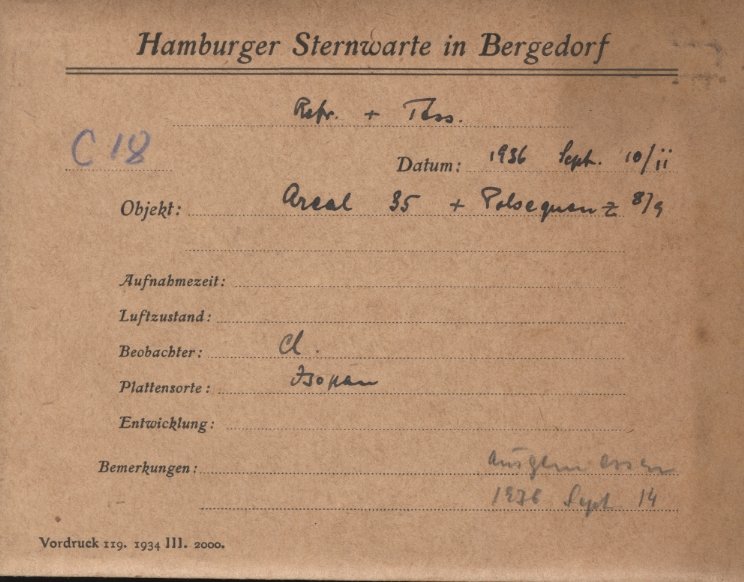 Hamburger Sternwarte in Bergedorf
Refr. + Tess.
C 18
Datum: 1936 Sept. 10/11
Objekt: Areal 35 + Polsequenz 8/9
Aufnahmezeit:
Luftzustand:
Beobachter: Cl.
Plattensorte: Isopan
Entwicklung:
Bemerkungen: ausgemessen
1936 Sept 14
Vordruck 119. 1934 III. 2000.